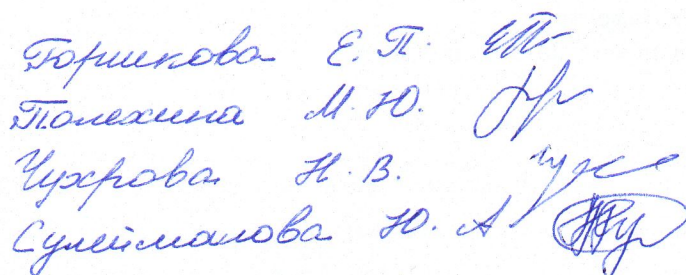 Горшкова Е. П.
Полехина М. Ю.
Чухрова Н. В.
Сулейманова Ю. А